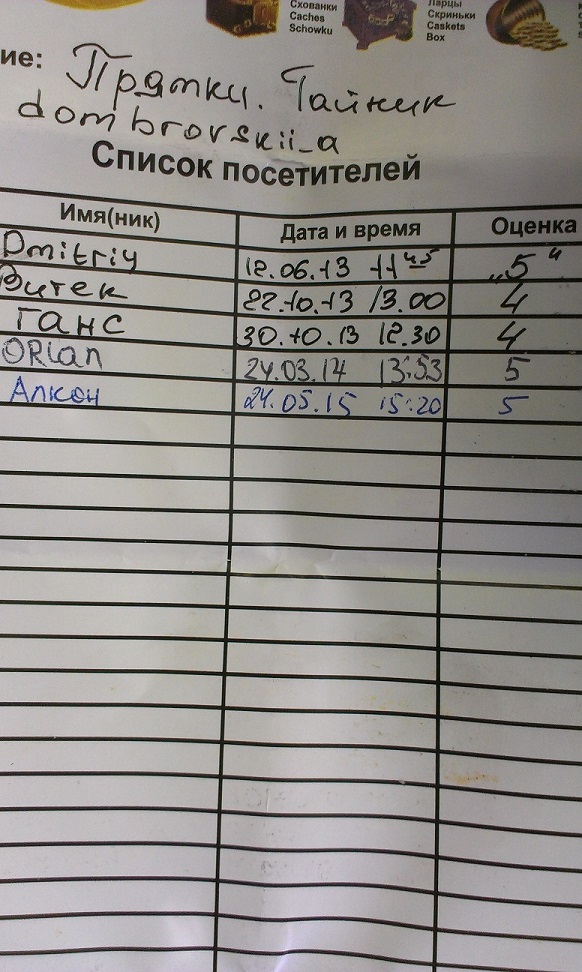 Схованки
Caches
Schowku
Ларцы
Скриньки
Caskets
Box
ие: Прятки. Тайник
dombrovskii_a
Список посетителей
Имя(ник) Дата и время Оценка
Dmitriy 12.06.13 11 45 „5“
Витек 22.10.13 13.00 4
Ганс 30.10.13 12.30 4
ORlan 24.03.14 13:53 5
Алкон 24.05.15 15:20 5